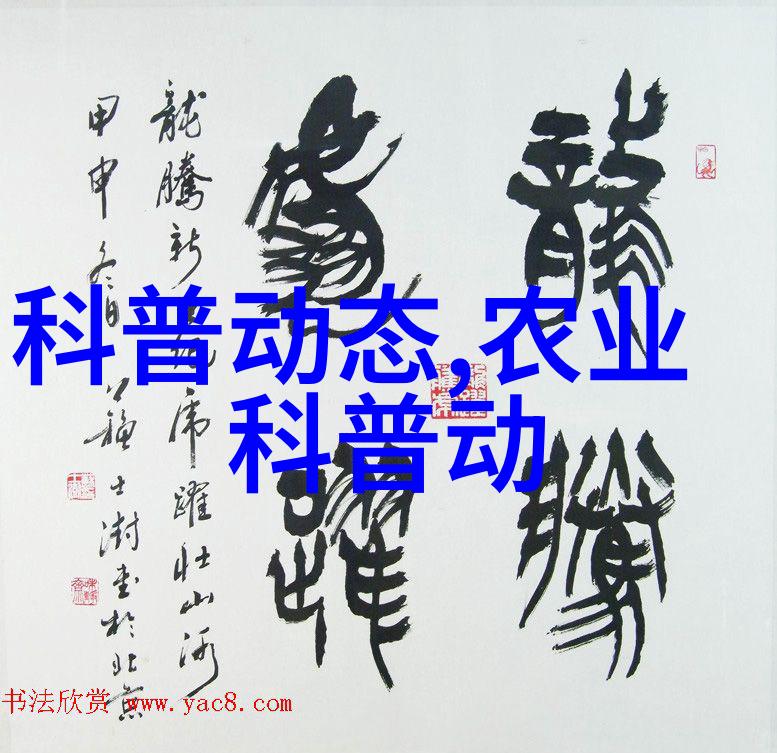 龍騰
虎躍
龍騰新世紀虎躍壯山河
甲申冬月 蘇士澍書於北京
科普动态,农业
科普动
书法欣赏 www.yac8.com